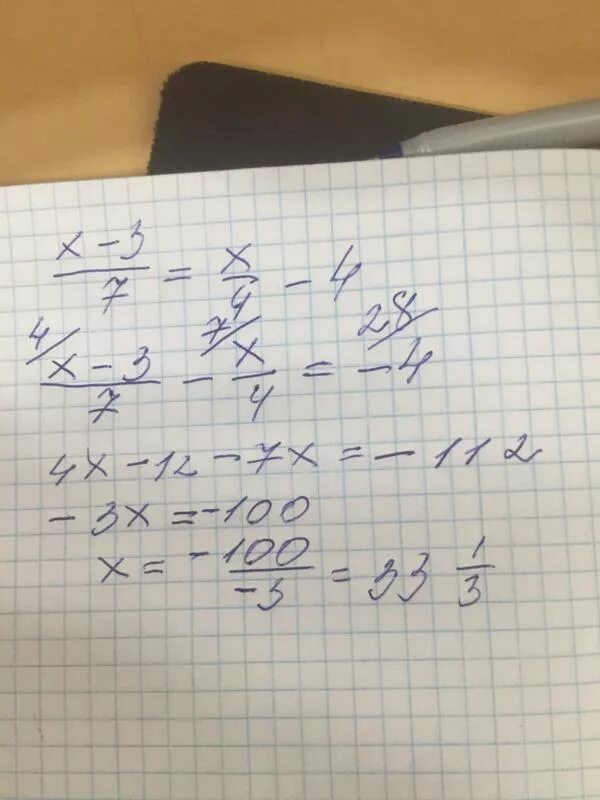 x - 3 / 7 = x / 4 - 4
4/ x - 3 / 7 - 7/ x / 4 = 28/ - 4
4x - 12 - 7x = - 112
- 3x = -100
x = -100 / -3 = 33 1/3